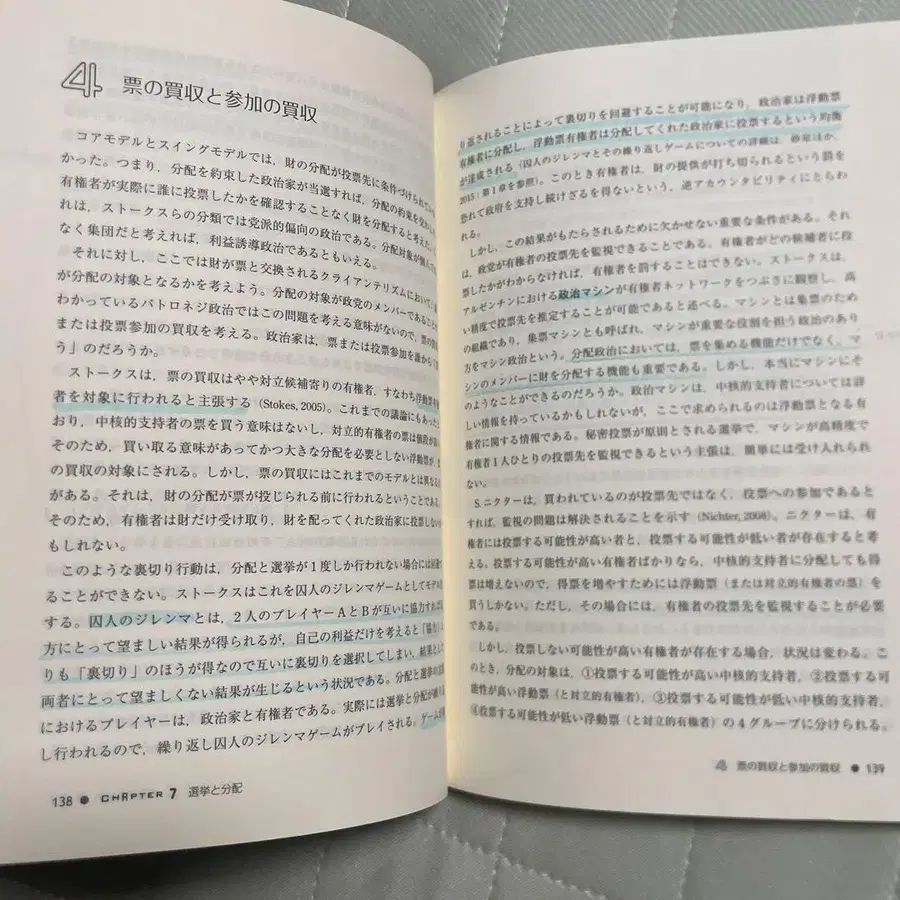 4 票の買収と参加の買収
コアモデルとスイングモデルでは，財の分配が投票先に条件づけられてい
かった。つまり，分配を約束した政治家が当選すれば，分配の約束を
有権者が実際に誰に投票したかを確認することなく財を分配すると考えた。
れは，ストークスらの分類では党派的偏向の政治である。分配対象が個人で
なく集団だと考えれば，利益誘導政治であるともいえる。
それに対し，ここでは財が票と交換されるクライアンテリズムにおいて，
が分配の対象となるかを考えよう。分配の対象が政党のメンバーであること
わかっているパトロネジ政治ではこの問題を考える意味がないので，票の買
または投票参加の買収を考える。政治家は，票または投票参加を誰から「
う」のだろうか。
ストークスは，票の買収はやや対立候補寄りの有権者，すなわち浮動票
者を対象に行われると主張する（Stokes, 2005）。これまでの議論にもあった
おり，中核的支持者の票を買う意味はないし，対立的有権者の票は値段が
そのため，買い取る意味があってかつ大きな分配を必要としない浮動票が，
の買収の対象にされる。しかし，票の買収にはこれまでのモデルとは異なる
がある。それは，財の分配が票が投じられる前に行われるということである。
そのため，有権者は財だけ受け取り，財を配ってくれた政治家に投票しない
もしれない。
このような裏切り行動は，分配と選挙が1度しか行われない場合には回避
ることができない。ストークスはこれを囚人のジレンマゲームとしてモデル
する。囚人のジレンマとは，2人のプレイヤーAとBが互いに協力すれば
方にとって望ましい結果が得られるが，自己の利益だけを考えると「協力」
りも「裏切り」のほうが得なので互いに裏切りを選択してしまい，結果として
両者にとって望ましくない結果が生じるという状況である。分配と選挙の
におけるプレイヤーは，政治家と有権者である。実際には選挙と分配が繰り
し行われるので，繰り返し囚人のジレンマゲームがプレイされる。ゲームが
138 ● CHAPTER 7 選挙と分配
り返されることによって裏切りを回避することが可能になり，政治家は浮動票
有権者に分配し，浮動票有権者は分配してくれた政治家に投票するという均衡
が達成される（囚人のジレンマとその繰り返しゲームについての詳細は，砂原ほか，
2015：第1章を参照）。このとき有権者は，財の提供が打ち切られるという罰を
恐れて政府を支持し続けざるを得ないという，逆アカウンタビリティにとらわ
れる。
しかし，この結果がもたらされるために欠かせない重要な条件がある。それ
は，政党が有権者の投票先を監視できることである。有権者がどの候補者に投
票したかがわからなければ，有権者を罰することはできない。ストークスは，
アルゼンチンにおける政治マシンが有権者ネットワークをつぶさに観察し，高
い精度で投票先を推定することが可能であると述べる。マシンとは集票のため
の組織であり，集票マシンとも呼ばれ，マシンが重要な役割を担う政治のあり
方をマシン政治という。分配政治においては，票を集める機能だけでなく，マ
シンのメンバーに財を分配する機能も重要である。しかし，本当にマシンにそ
のようなことができるのだろうか。政治マシンは，中核的支持者については詳
しい情報を持っているかもしれないが，ここで求められるのは浮動票となる有
権者に関する情報である。秘密投票が原則とされる選挙で，マシンが高精度で
有権者1人ひとりの投票先を監視できるという主張は，簡単には受け入れられ
ない。
S.ニクターは，買われているのが投票先ではなく，投票への参加であると
すれば，監視の問題は解決されることを示す（Nichter, 2008）。ニクターは，有
権者には投票する可能性が高い者と，投票する可能性が低い者が存在すると考
える。投票する可能性が高い有権者ばかりなら，中核的支持者に分配しても得
票は増えないので，得票を増やすためには浮動票（または対立的有権者の票）を
買うしかない。ただし，その場合には，有権者の投票先を監視することが必要
である。
しかし，投票しない可能性が高い有権者が存在する場合，状況は変わる。こ
のとき，分配の対象は，①投票する可能性が高い中核的支持者，②投票する可
能性が高い浮動票（と対立的有権者），③投票する可能性が低い中核的支持者，
④投票する可能性が低い浮動票（と対立的有権者）の4グループに分けられる。
4 票の買収と参加の買収 ● 139